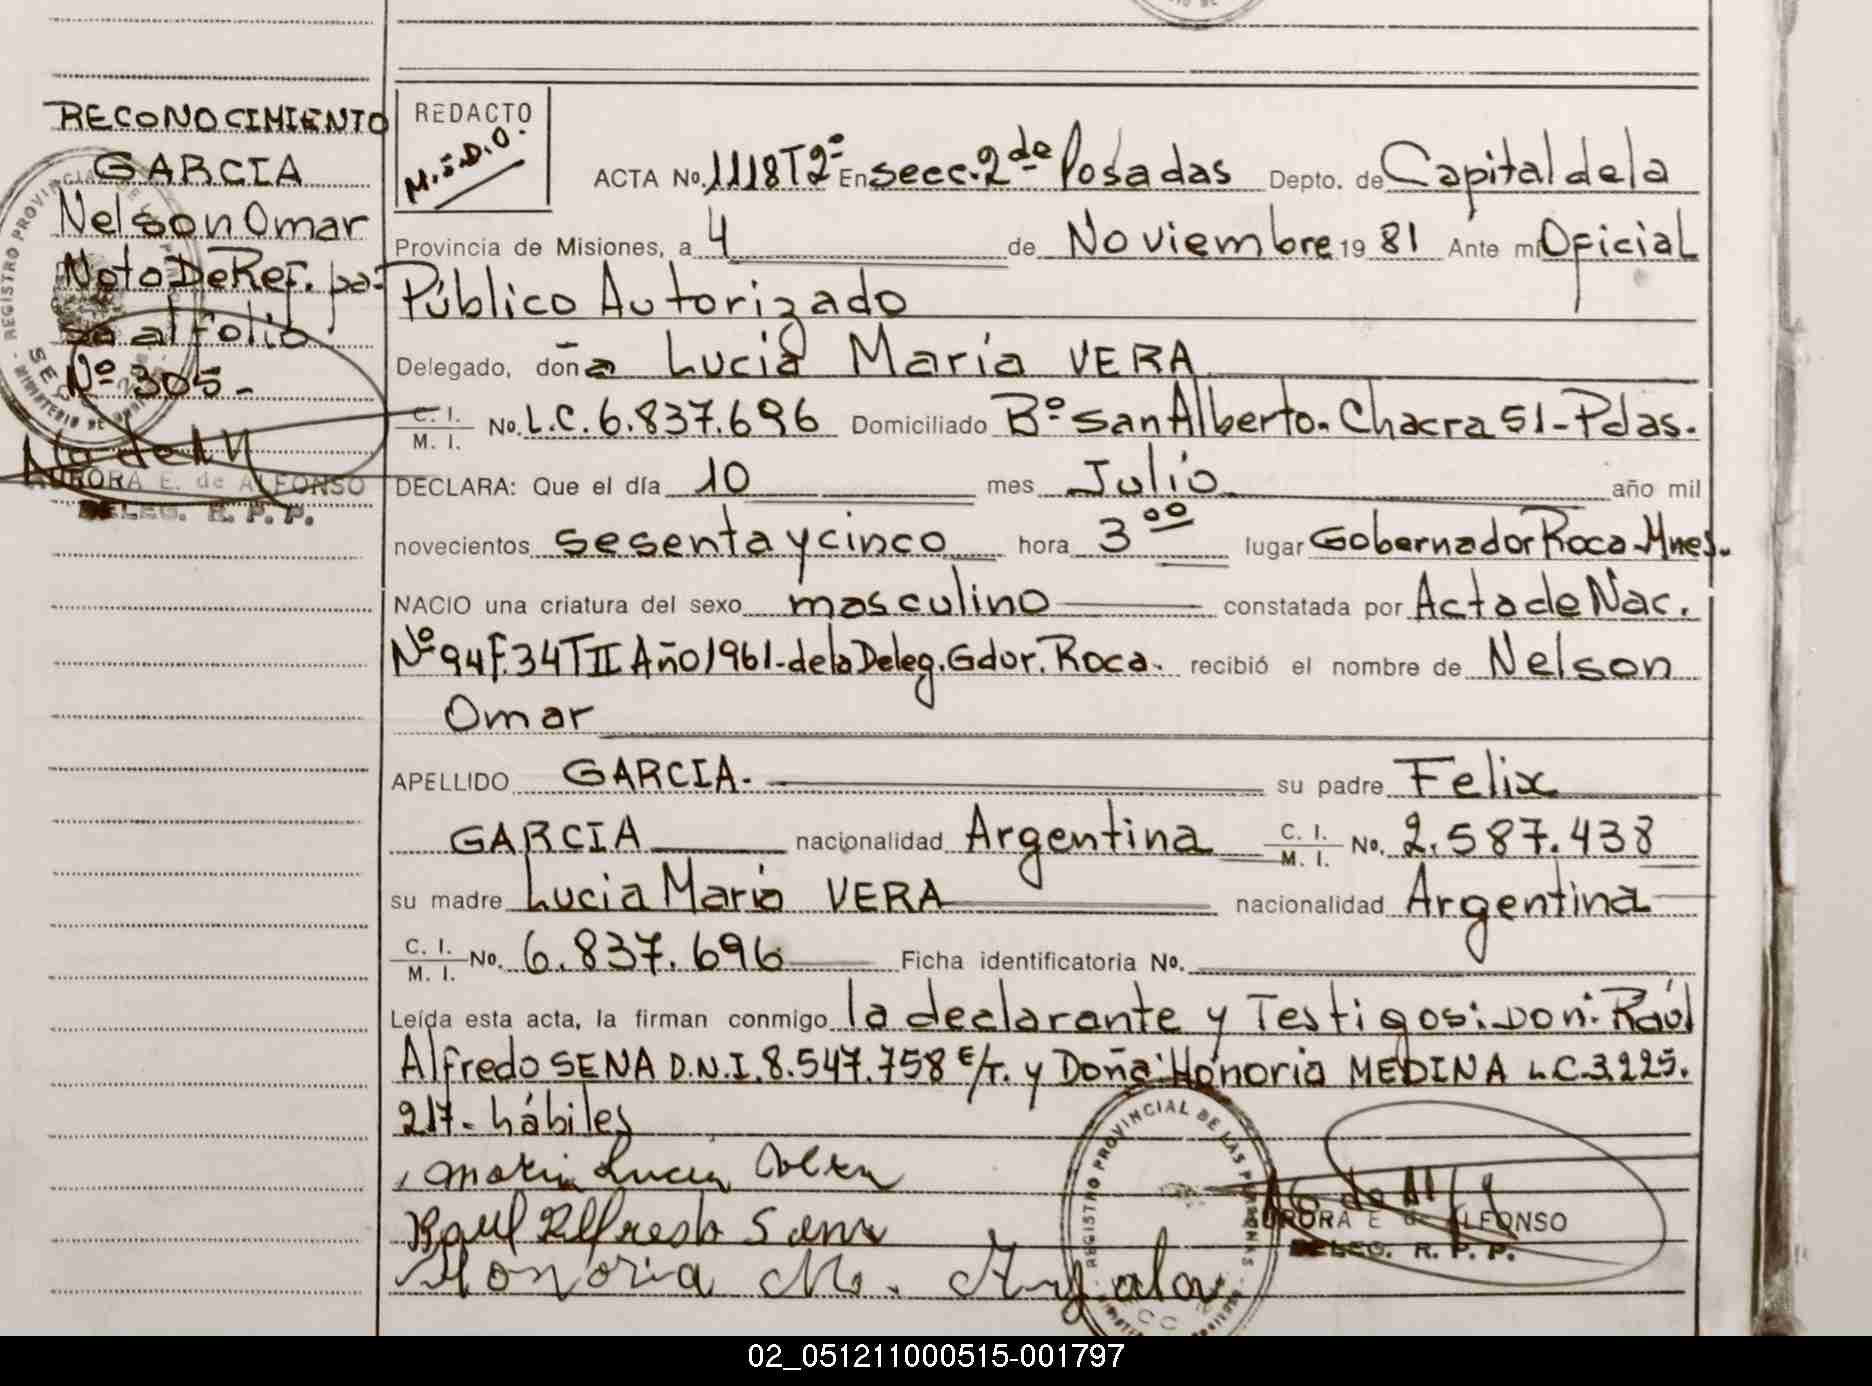 RECONOCIMIENTO
GARCIA
Nelson Omar
Nota De Ref. pa-
sa al folio
Nº 305-
AURORA E. de ALFONSO
DELEG. R. P. P.
REDACTO
M.S.D.O.
ACTA No. 1118 T2º En secc. 2da Posadas Depto. de Capital de la
Provincia de Misiones, a 4 de Noviembre 19 81 Ante mi Oficial
Público Autorizado
Delegado, doña Lucia Maria VERA
C. I.
M. I. No. L.C. 6.837.696 Domiciliado Bº San Alberto. Chacra 51-Pdas.
DECLARA: Que el día 10 mes Julio año mil
novecientos sesenta y cinco hora 3ºº lugar Gobernador Roca-Mnes.
NACIO una criatura del sexo masculino constatada por Acta de Nac.
Nº 94 F. 34 T II Año 1961-de la Deleg. Gdor. Roca. recibió el nombre de Nelson
Omar
APELLIDO GARCIA. su padre Felix
GARCIA nacionalidad Argentina C. I.
M. I. No. 2.587.438
su madre Lucia Maria VERA nacionalidad Argentina
C. I.
M. I. No. 6.837.696 Ficha identificatoria No.
Leída esta acta, la firman conmigo la declarante y Testigos: Don: Raúl
Alfredo SENA D.N.I. 8.547.758 E/T. y Doña: Honoria MEDINA L.C. 3.225.
217- hábiles
Maria Lucia Vera
Raul Alfredo Sena
Honoria M.
REGISTRO PROVINCIAL DE LAS PERSONAS
AURORA E de ALFONSO
DELEG. R. P. P.
02_051211000515-001797